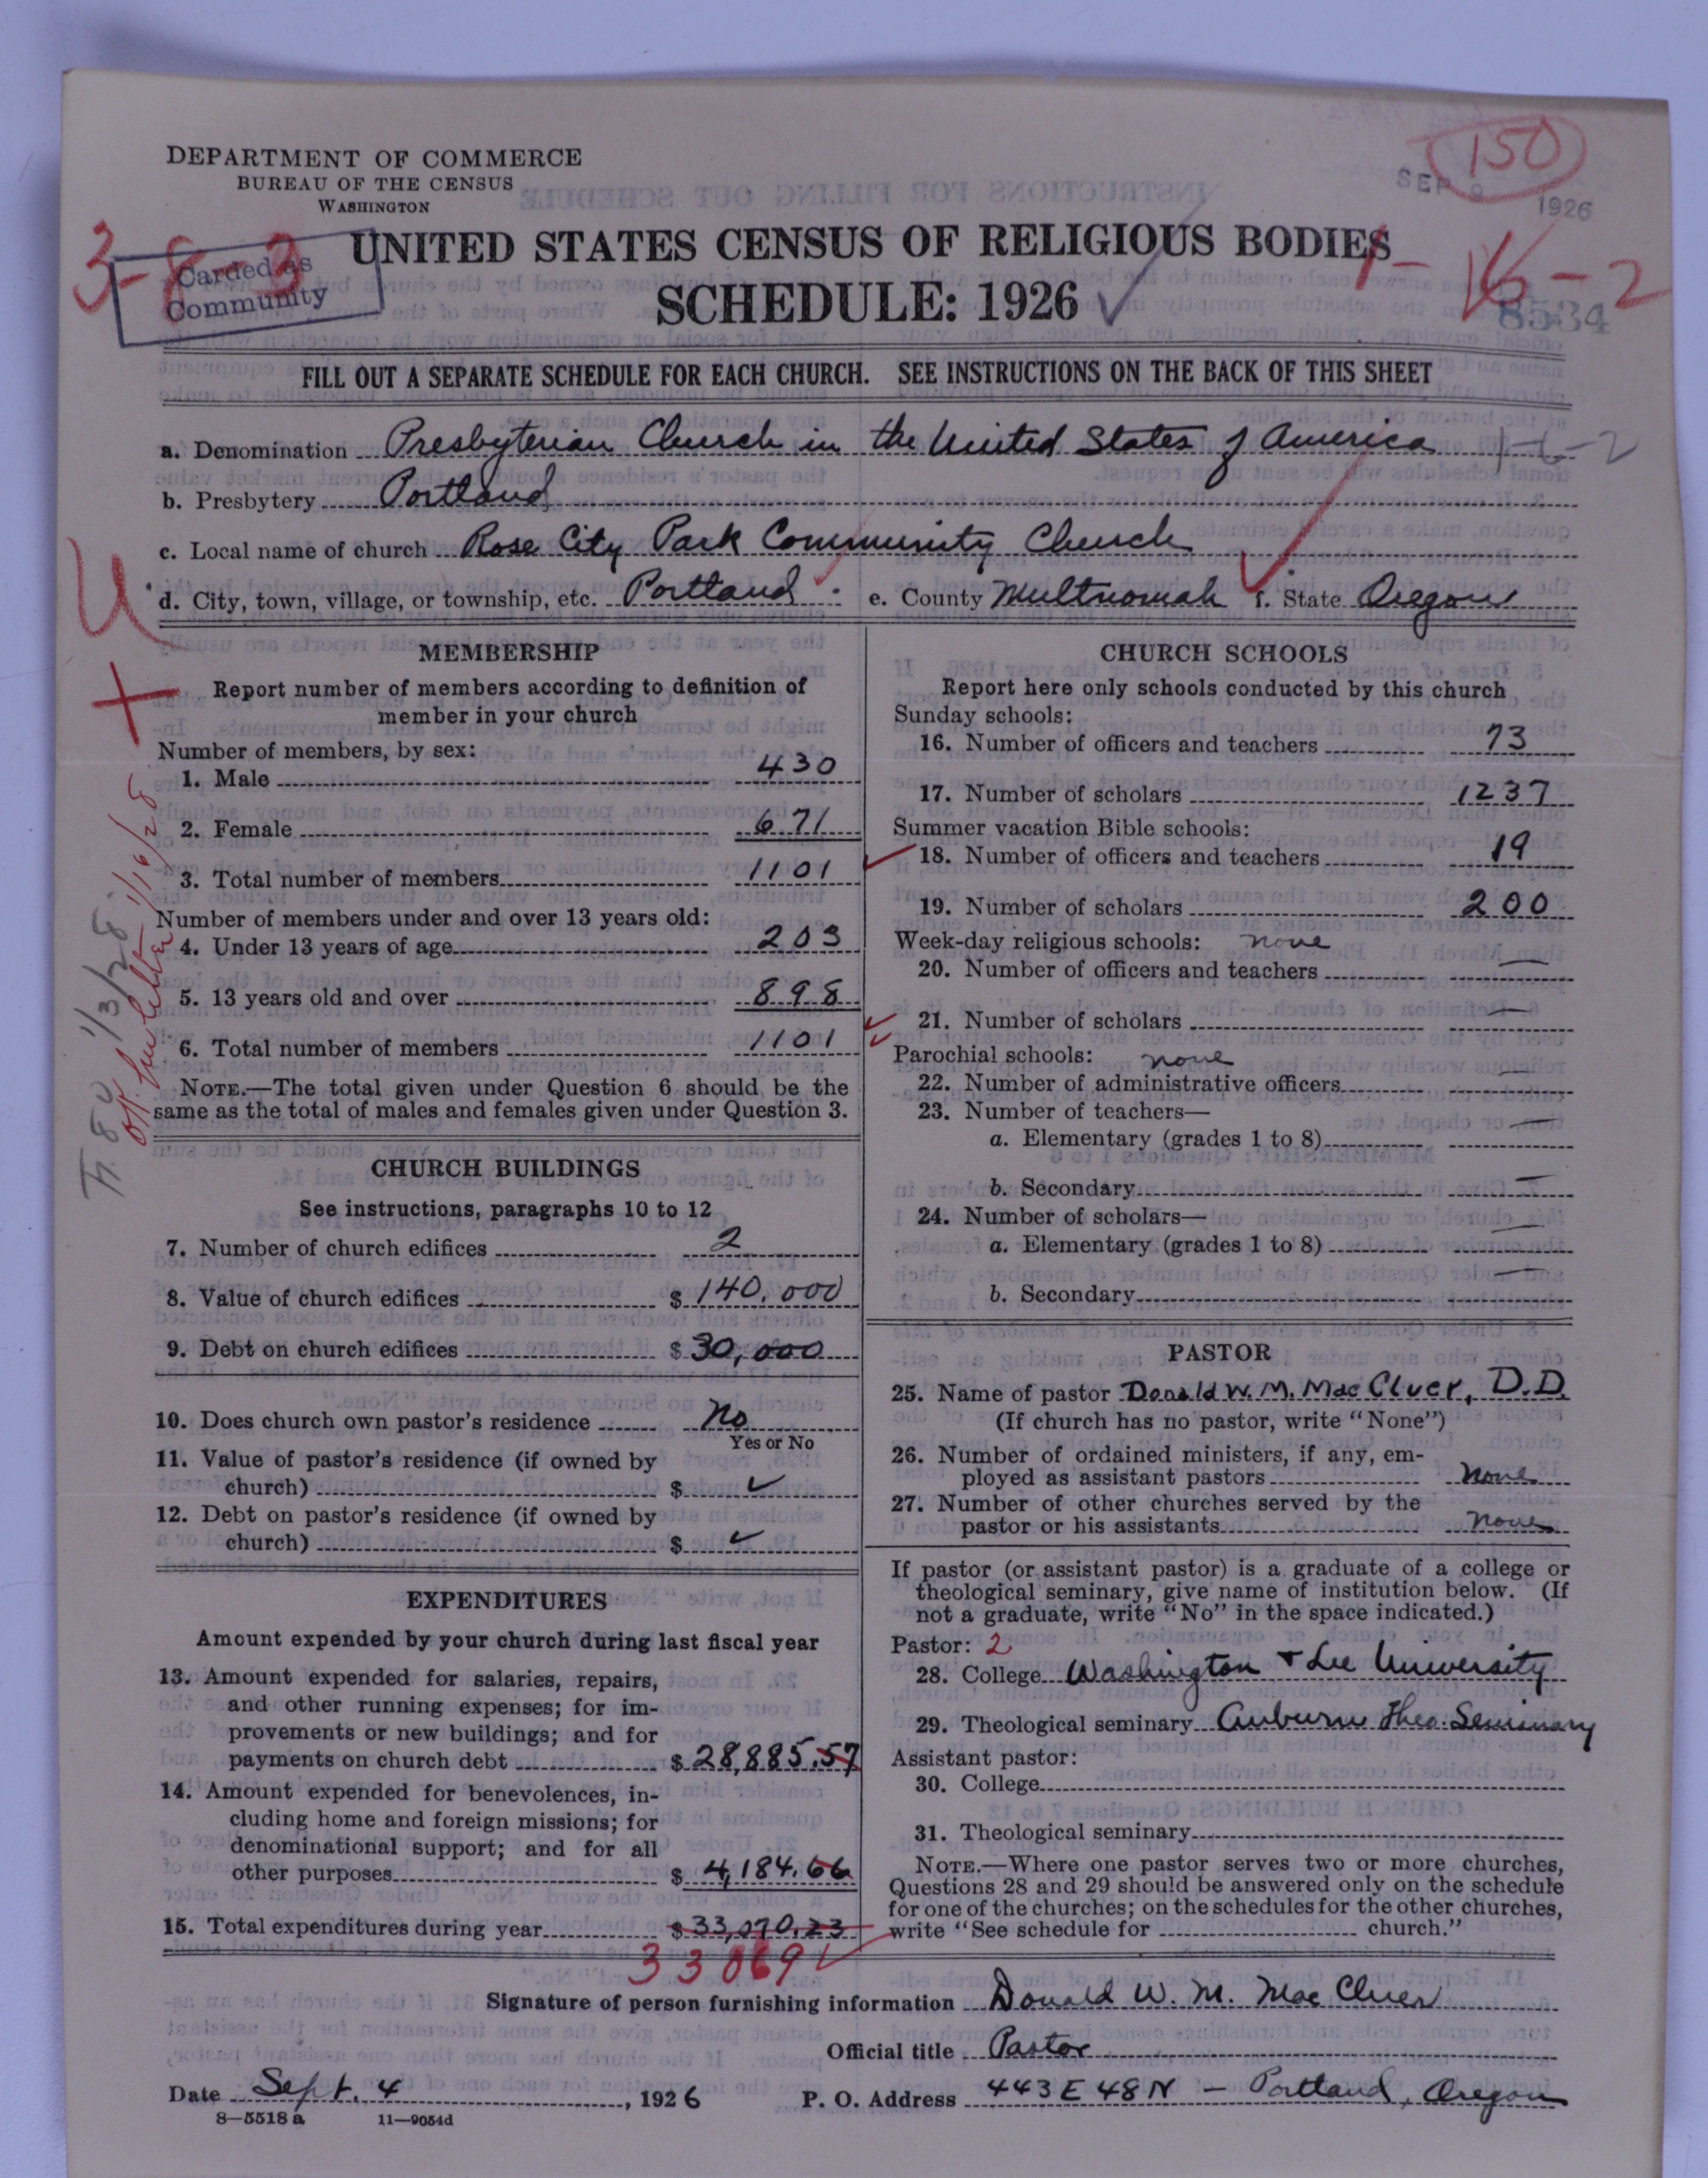 DEPARTMENT OF COMMERCE
BUREAU OF THE CENSUS
WASHINGTON
150
SEP 9 1926
3-8-3
Carded as
Community
UNITED STATES CENSUS OF RELIGIOUS BODIES
SCHEDULE: 1926 ✓
1-16-2
8534
FILL OUT A SEPARATE SCHEDULE FOR EACH CHURCH. SEE INSTRUCTIONS ON THE BACK OF THIS SHEET
a. Denomination Presbyterian Church in the United States of America
b. Presbytery Portland
c. Local name of church Rose City Park Community Church
d. City, town, village, or township, etc. Portland e. County Multnomah f. State Oregon
MEMBERSHIP
Report number of members according to definition of
member in your church
Number of members, by sex:
1. Male 430
2. Female 671
3. Total number of members 1101
Number of members under and over 13 years old:
4. Under 13 years of age 203
5. 13 years old and over 898
6. Total number of members 1101
NOTE.—The total given under Question 6 should be the
same as the total of males and females given under Question 3.
CHURCH BUILDINGS
See instructions, paragraphs 10 to 12
7. Number of church edifices 2
8. Value of church edifices $ 140,000
9. Debt on church edifices $ 30,000
10. Does church own pastor's residence No
Yes or No
11. Value of pastor's residence (if owned by
church) $ ✓
12. Debt on pastor's residence (if owned by
church) $ ✓
EXPENDITURES
Amount expended by your church during last fiscal year
13. Amount expended for salaries, repairs,
and other running expenses; for im-
provements or new buildings; and for
payments on church debt $ 28,885.57
14. Amount expended for benevolences, in-
cluding home and foreign missions; for
denominational support; and for all
other purposes $ 4,184.66
15. Total expenditures during year $ 33,070.23
33069 ✓
CHURCH SCHOOLS
Report here only schools conducted by this church
Sunday schools:
16. Number of officers and teachers 73
17. Number of scholars 1237
Summer vacation Bible schools:
18. Number of officers and teachers 19
19. Number of scholars 200
Week-day religious schools: none
20. Number of officers and teachers —
21. Number of scholars —
Parochial schools: none
22. Number of administrative officers —
23. Number of teachers—
a. Elementary (grades 1 to 8) —
b. Secondary —
24. Number of scholars—
a. Elementary (grades 1 to 8) —
b. Secondary —
PASTOR
25. Name of pastor Donald W. M. MacCluer, D.D.
(If church has no pastor, write "None")
26. Number of ordained ministers, if any, em-
ployed as assistant pastors None
27. Number of other churches served by the
pastor or his assistants none
If pastor (or assistant pastor) is a graduate of a college or
theological seminary, give name of institution below. (If
not a graduate, write "No" in the space indicated.)
Pastor: 2
28. College Washington & Lee University
29. Theological seminary Auburn Theo. Seminary
Assistant pastor:
30. College
31. Theological seminary
NOTE.—Where one pastor serves two or more churches,
Questions 28 and 29 should be answered only on the schedule
for one of the churches; on the schedules for the other churches,
write "See schedule for church."
Signature of person furnishing information Donald W. M. MacCluer
Official title Pastor
Date Sept. 4, 1926 P. O. Address 443 E 48 N - Portland, Oregon
8—5518 a 11—9054d